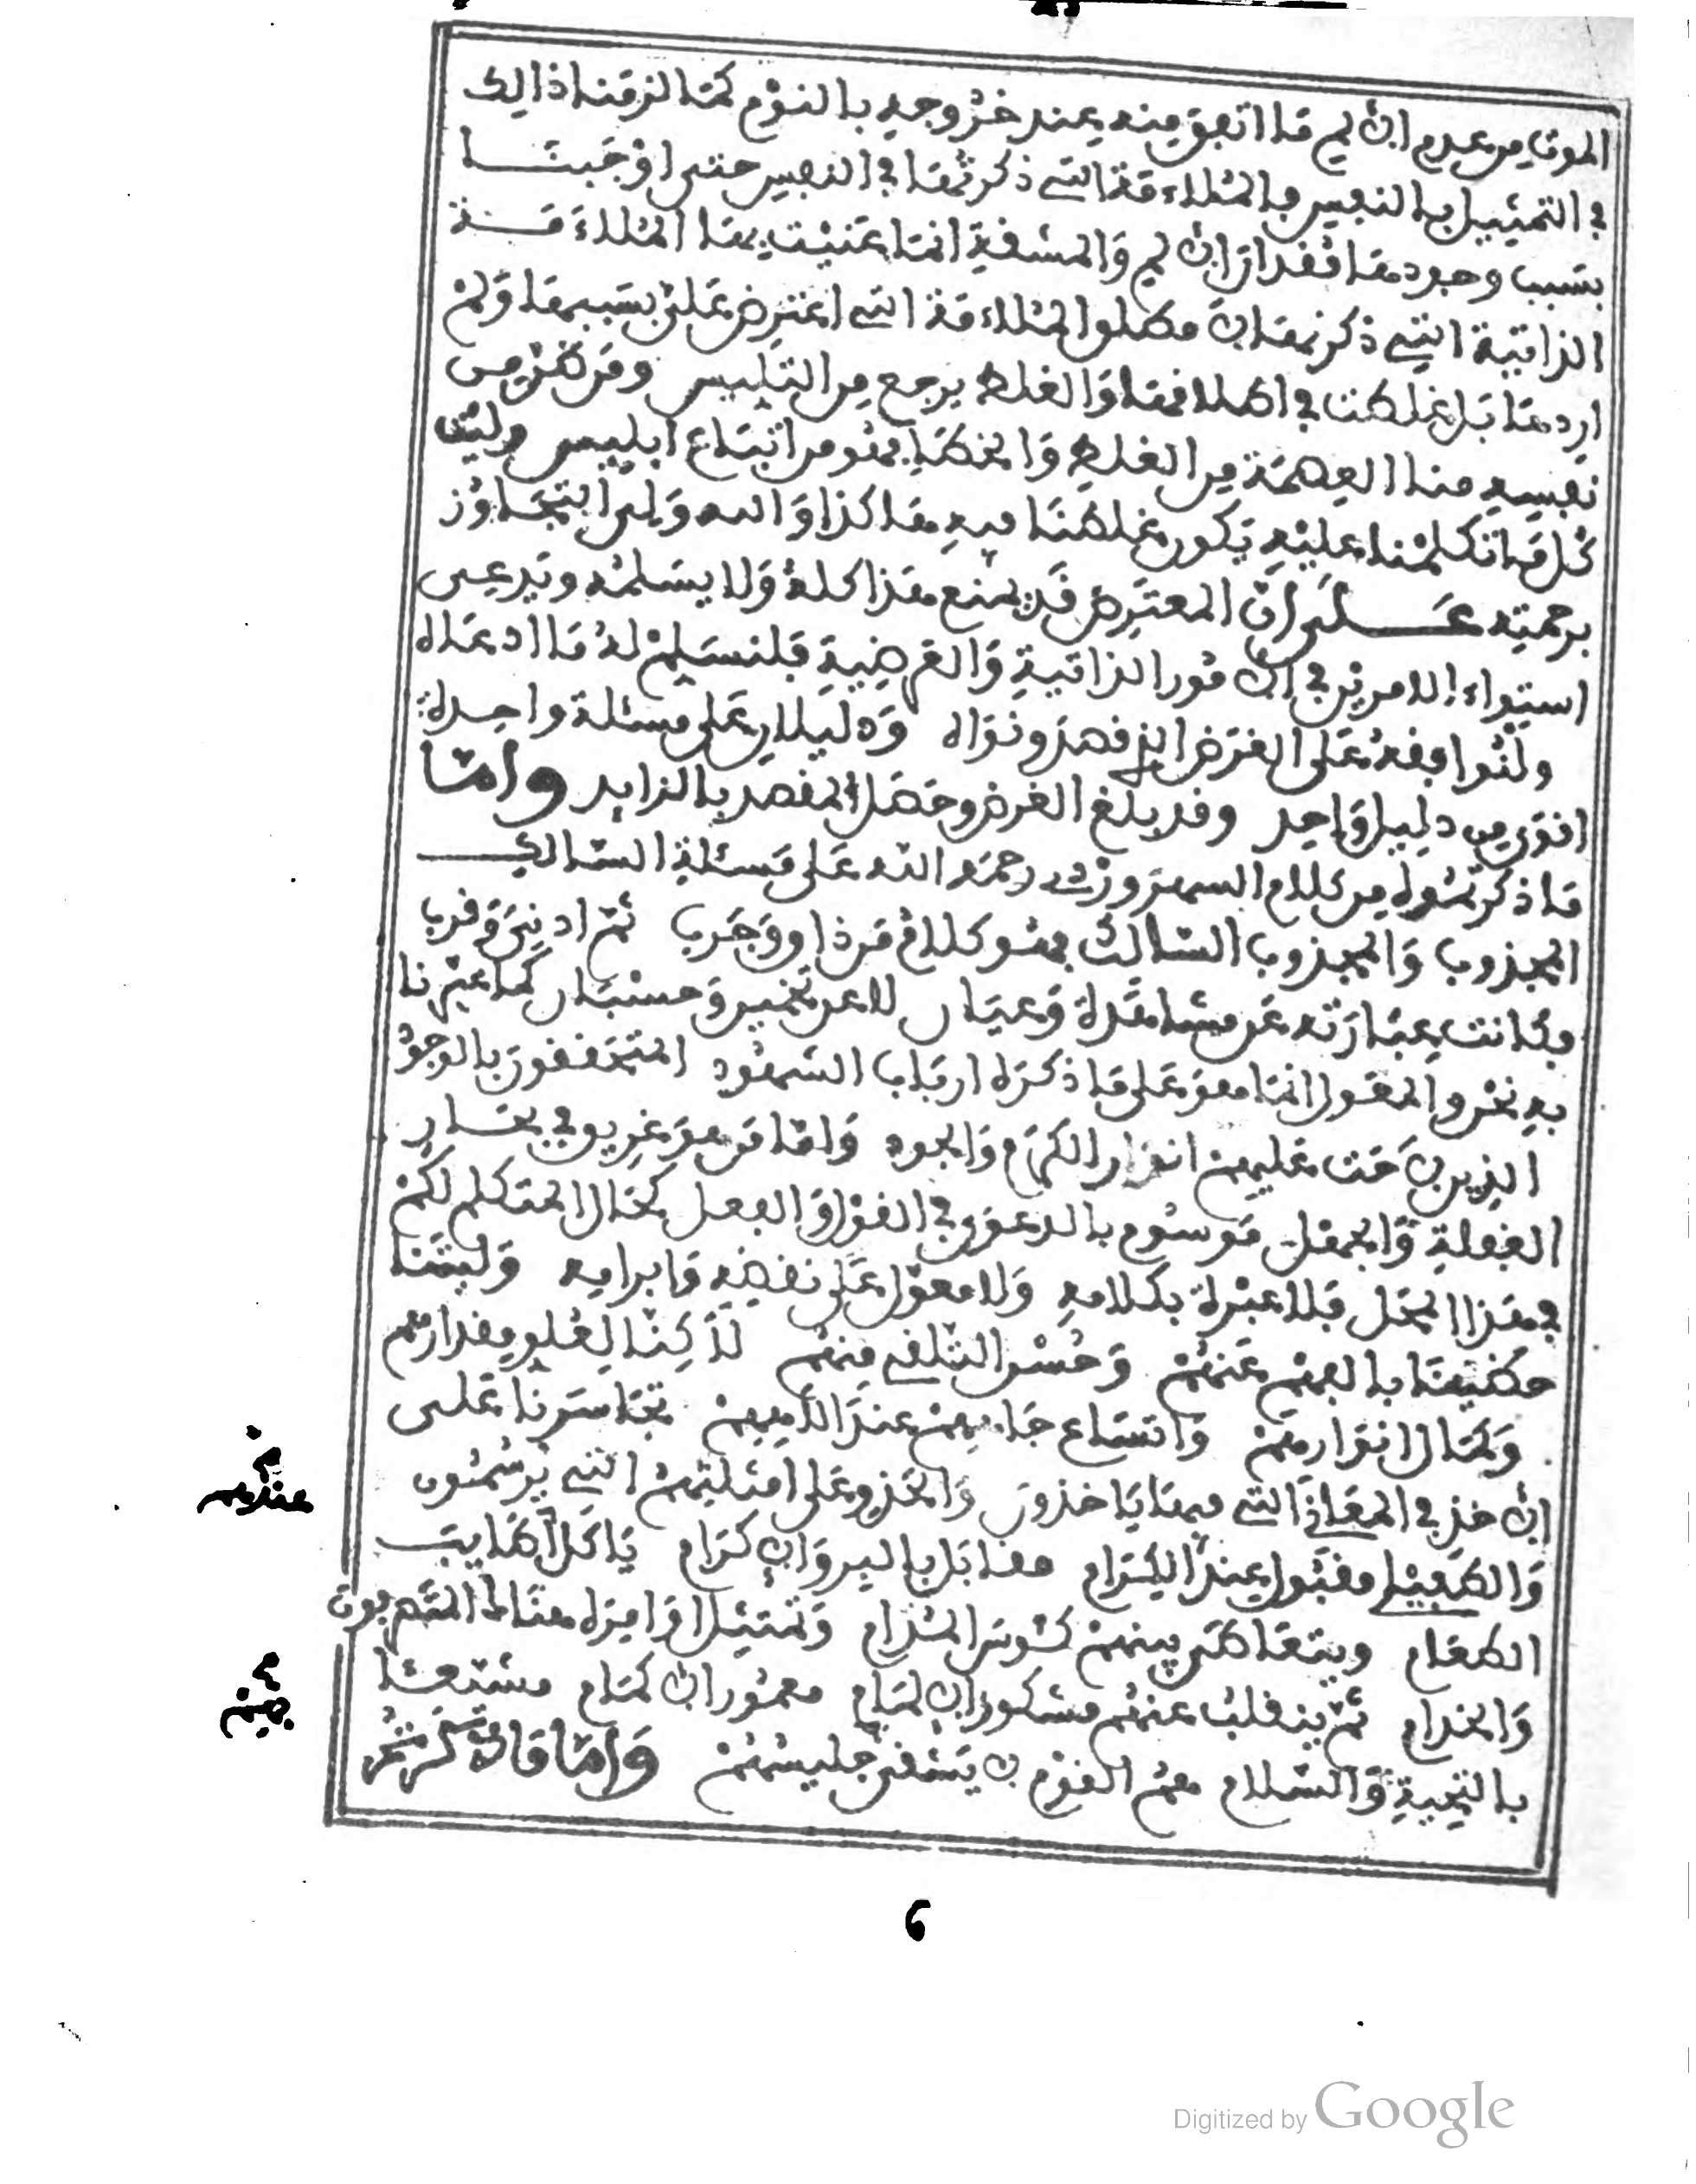 الموت من عدم الألم ما اتفق منه عند خروجه بالنوم كما لزمنا ذالك
في التمثيل بالنفس والملاءمة التي ذكرتها في النفس حتى أوجبت
بسبب وجودها فقدان الألم والمشقة انما عنيت بها الملاءمة
الذاتية التي ذكرتها لا مطلق الملاءمة التي اعترض علي بسببها ولم
اردها بل غلطت في اطلاقها والغلط يرجع من التلبيس ومن ظن من
نفسه هنا العصمة من الغلط والخطإ فهو من اتباع ابليس وليت
كل ما تكلمنا عليه يكون غلطنا فيه هاكذا والله ولي التجاوز
برحمته على ان المعترض قد يمنع هذا كله ولا يسلمه ويدعي
استواء الامرين في الامور الذاتية والعرضية فلنسلم له ما ادعاه
ولنوافقه على الغرض الذي قصد ونواه ودليلان على مسئلة واحدة
اقوى من دليل واحد وقد بلغ الغرض وحصل المقصد بالزايد واما
ما ذكرتموه من كلام السهروردي رحمه الله على مسئلة السالك
المجذوب والمجذوب السالك فهو كلام من ذاق وجرب ثم ادني وقرب
فكانت عبارته عن مشاهدة وعيان لا عن تخمين وحسبان كما عبرنا
به نحن والمعول انما هو على ما ذكره ارباب الشهود المتحققون بالوجود
الذين لاحت عليهم انوار الكرم والجود واما من هو غريق في بحار
الغفلة والجهل موسوم بالدعوى في القول والفعل كحال المتكلم لكم
في هذا المحل فلا عبرة بكلامه ولا معول على نقضه وابرامه وليتنا
حظينا بالفهم عنهم وحسن التلقي منهم لاكنا لعلو مقدارهم
وكمال انوارهم واتساع جاههم عند الاههم تجاسرنا على
الاخذ في المعاني التي فيها ياخذون والحذو على امثلتهم التي يرسمون
والطفيلي مقبول عند الكرام مقابل بالبر والاكرام ياكل اطايب
الطعام ويتعاطى بينهم كئوس المدام وتمتثل اوامره هناك
والخدام ثم ينقلب عنهم مشكور الالمام معمور الاكمام مشيعا
بالتحية والسلام هم القوم لا يشقى جليسهم واما ما ذكرتم
6
Digitized by Google